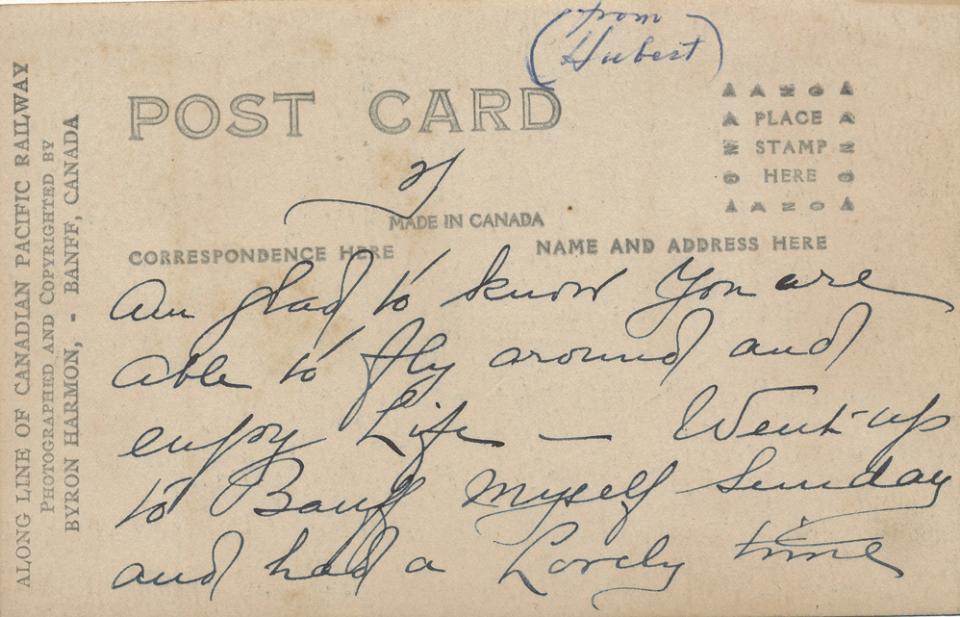 (from
Hubert)
POST CARD
AZO
PLACE
STAMP
HERE
AZO
MADE IN CANADA
CORRESPONDENCE HERE
NAME AND ADDRESS HERE
Am glad to know You are
able to fly around and
enjoy Life — Went up
to Banff myself Sunday
and had a Lovely time
ALONG LINE OF CANADIAN PACIFIC RAILWAY
PHOTOGRAPHED AND COPYRIGHTED BY
BYRON HARMON, - BANFF, CANADA